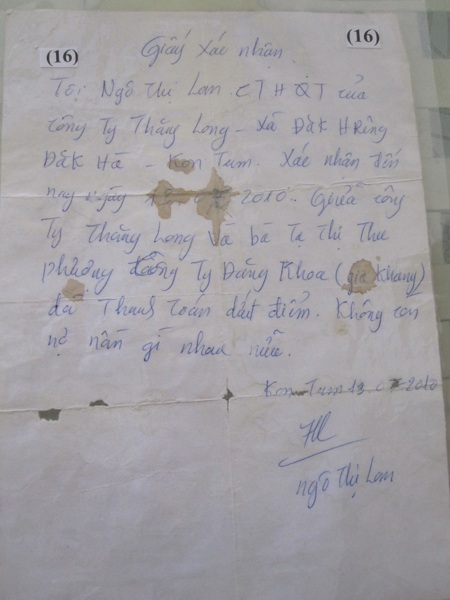 (16)
(16)
Giấy xác nhận
Tôi Ngô Thị Lan. CTHQT của
công Ty Thăng Long - xã Đăk HRing
Đăk Hà - Kon Tum. Xác nhận đến
nay ngày 2010. Giữa công
Ty Thăng Long và bà Tạ Thị Thu
phượng công Ty Đăng Khoa (gia Khang)
đã Thanh Toán dứt điểm. Không còn
nợ nần gì nhau nữa.
Kon Tum 13 2010
Ngô Thị Lan